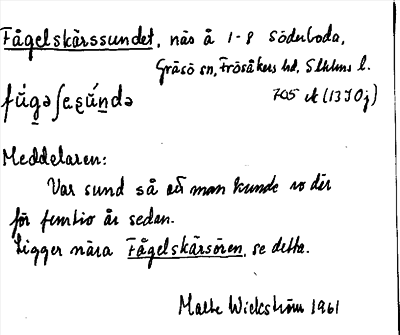 Fågelskärssundet, näs å 1-8 Söderboda,
Gräsö sn, Frösåkers hd, Sthlms l.
705 ek (13I0j)
fǘgəʃeʂǘndə
Meddelaren:
Var sund så att man kunde ro där
för femtio år sedan.
Ligger nära Fågelskärsören, se detta.
Malte Wickström 1961